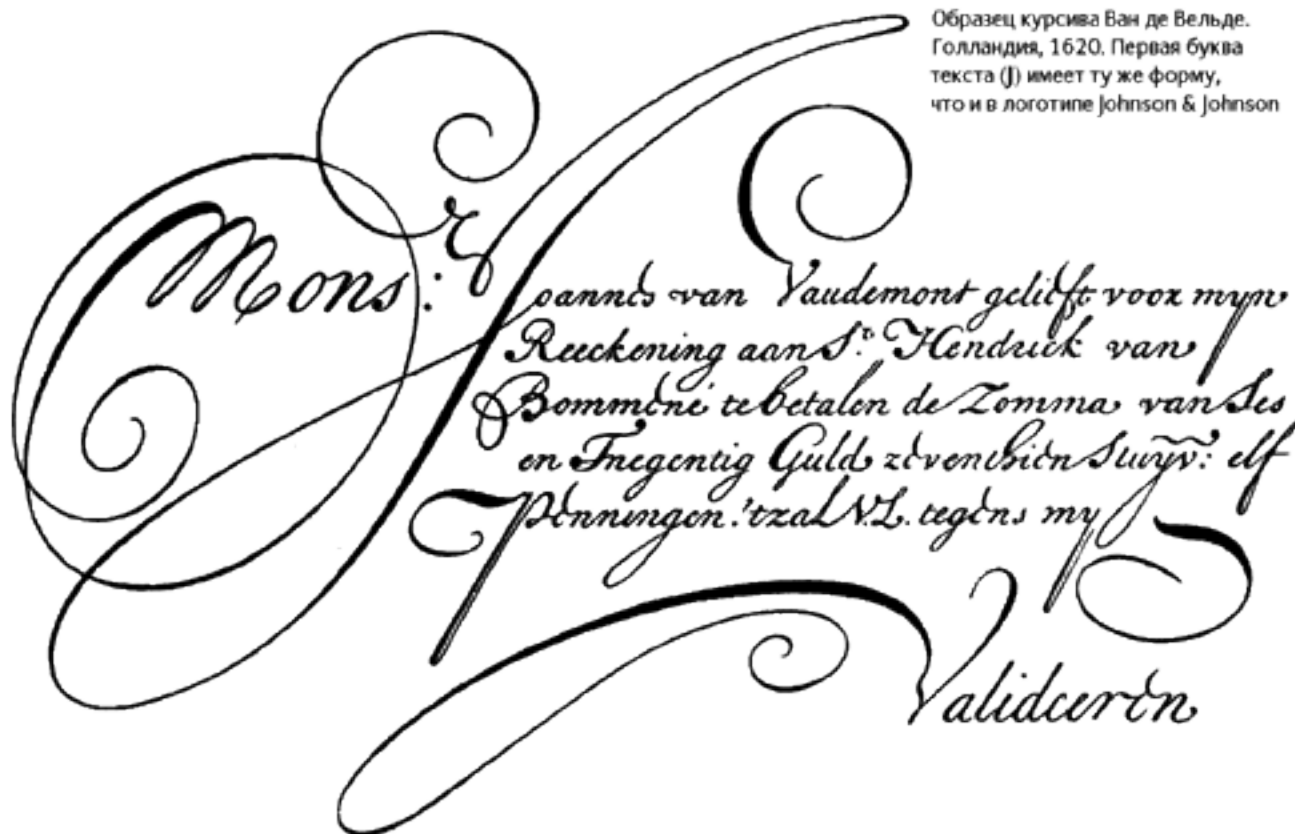 Образец курсива Ван де Вельде.
Голландия, 1620. Первая буква
текста (J) имеет ту же форму,
что и в логотипе Johnson & Johnson
Monsr:
Joannes van Vaudemont gelieft voor myn
Reeckening aan Sr. Hendrick van
Bommene te betalen de Zomma van Ses
en Tnegentig Guld zeventhien Stuyv: elf
Penningen 'tzal V.L. tegens my
Valideeren